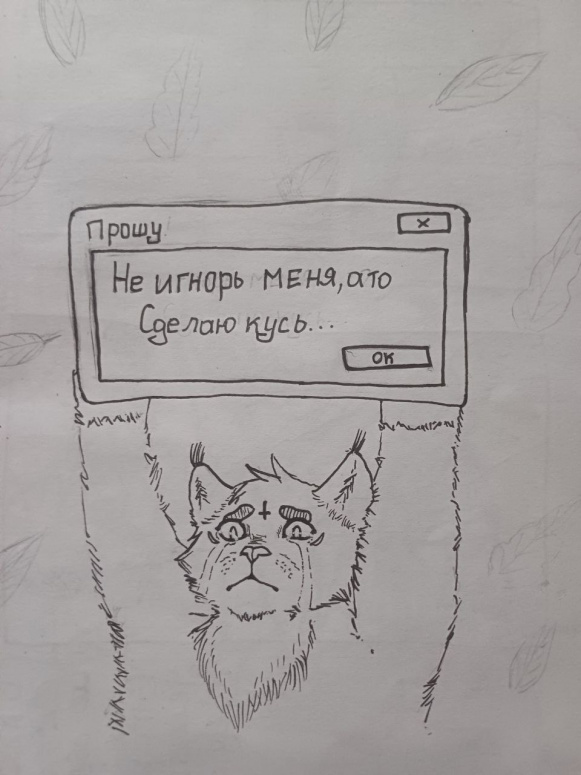 Прошу
x
Не игнорь меня, а то
Сделаю кусь...
ок